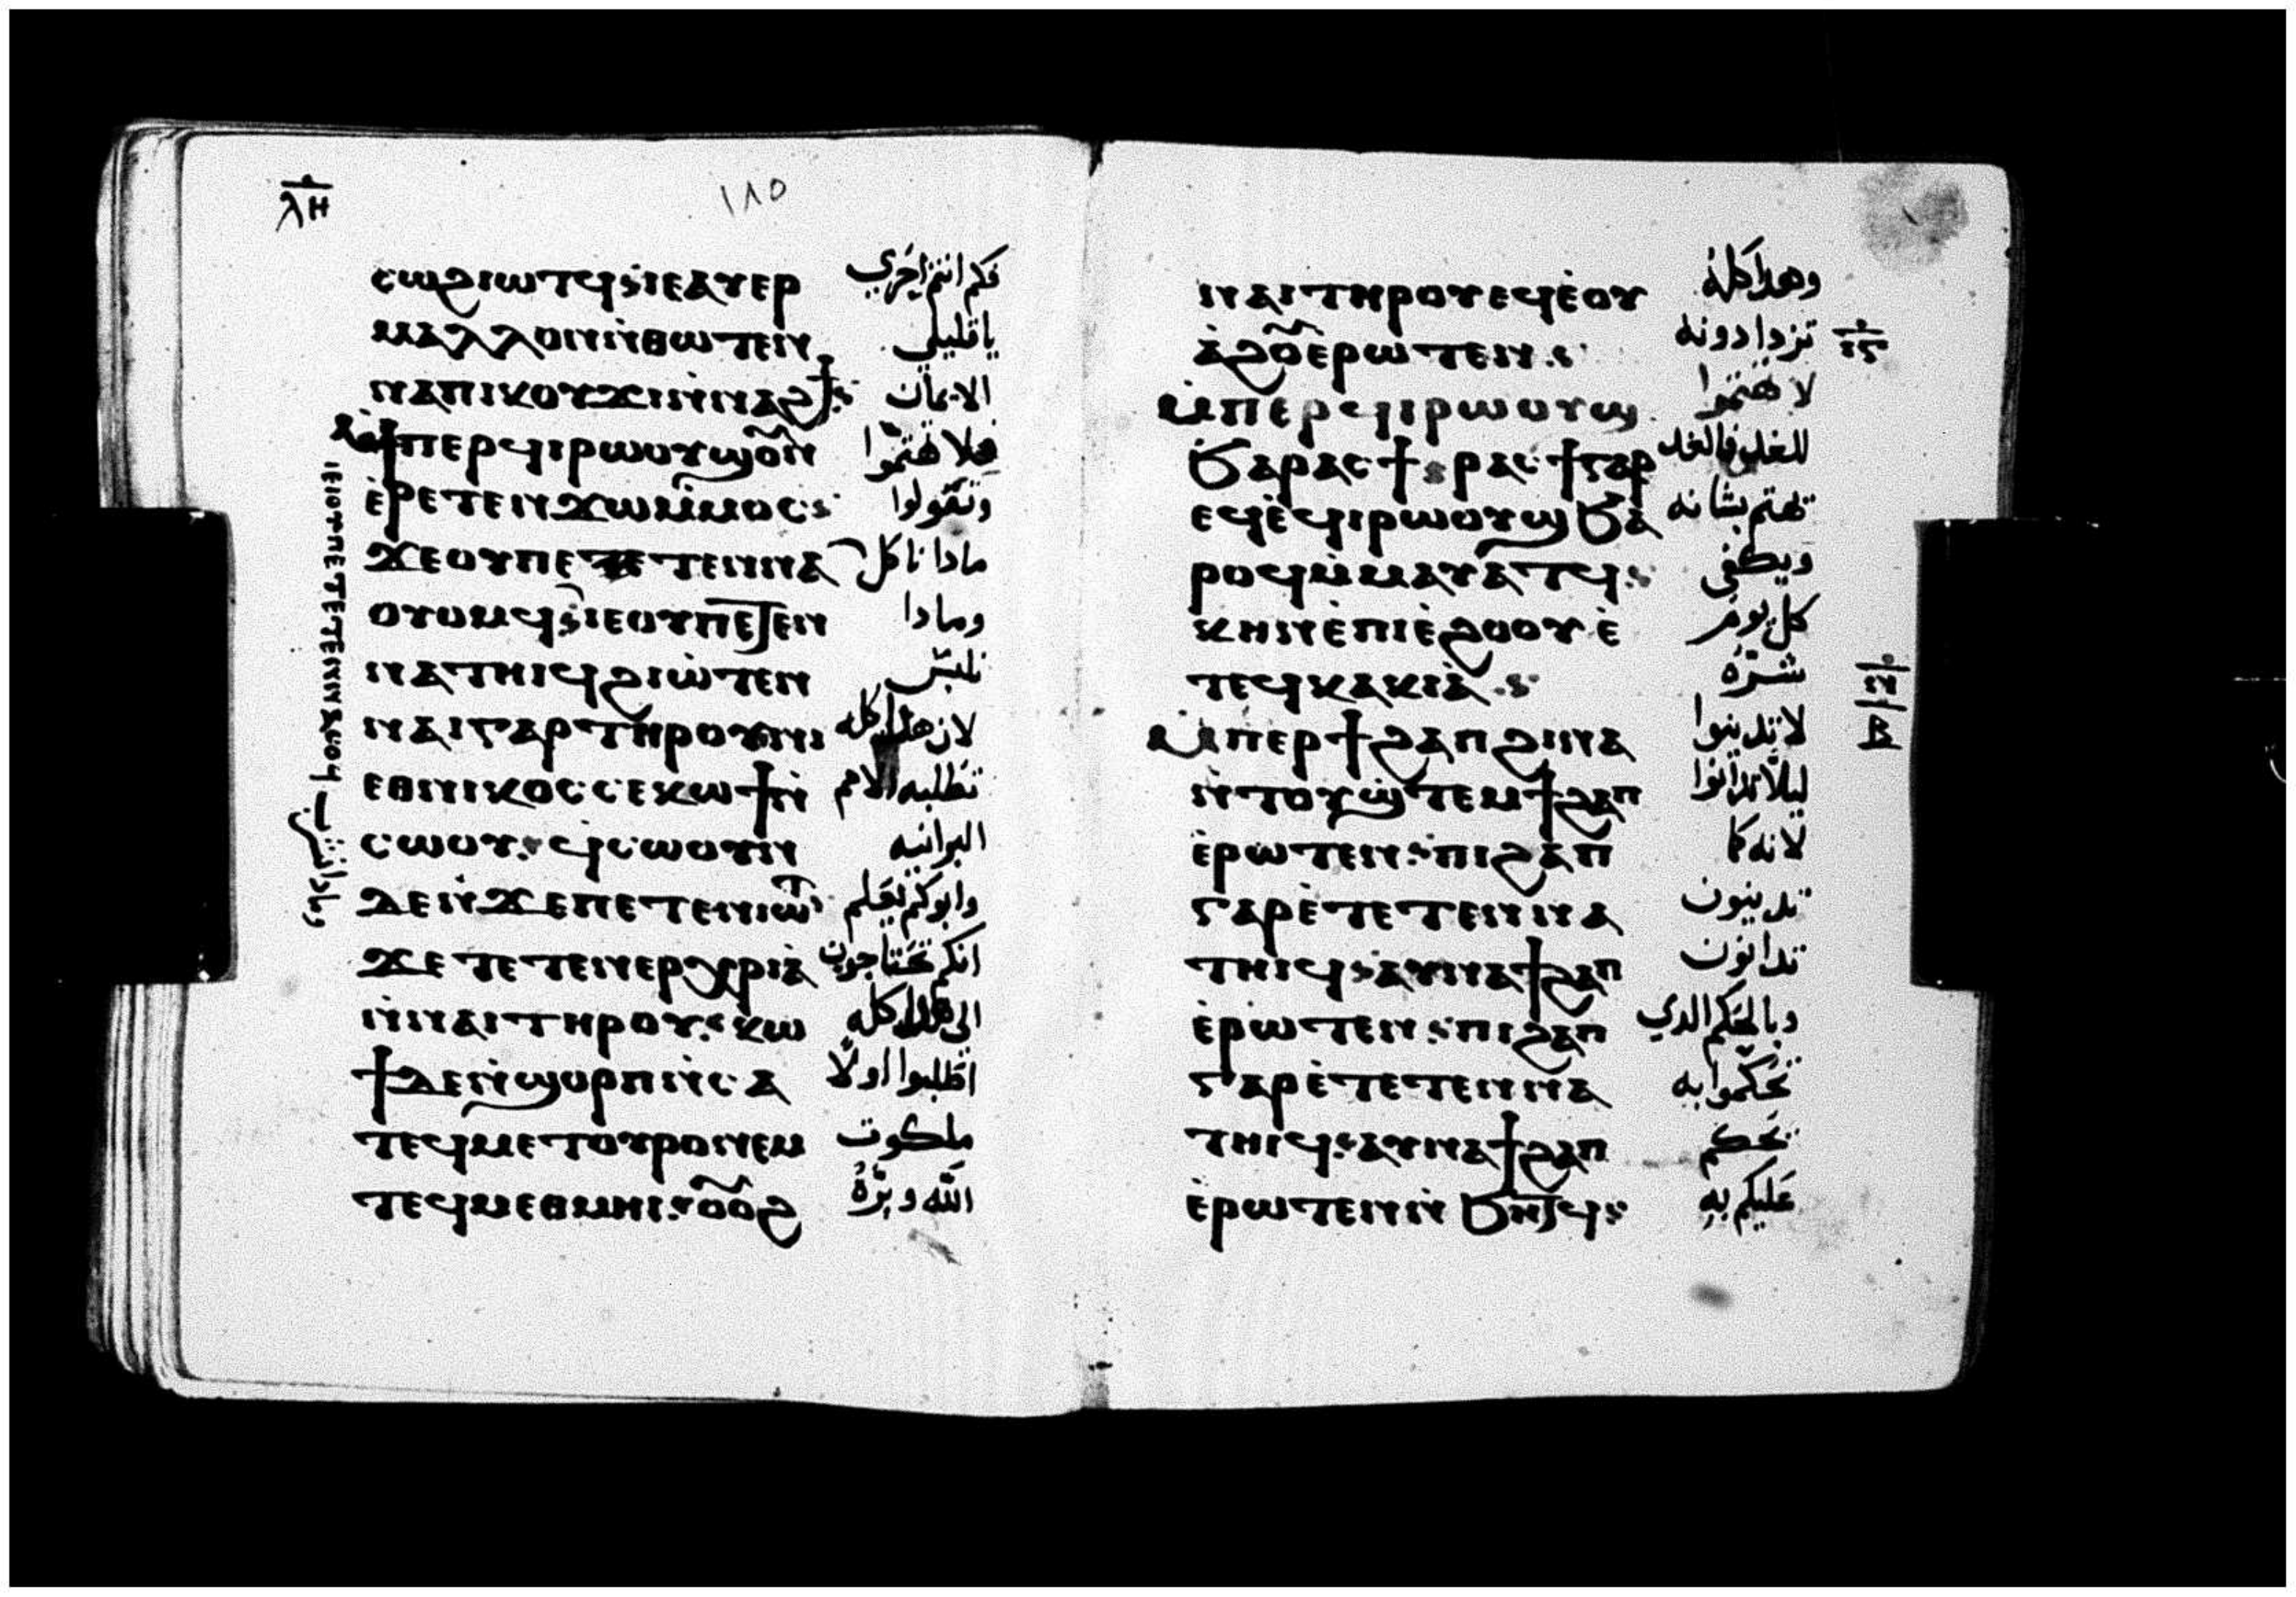 ⲗⲏ
١٨٥
ⲥⲱϩⲓⲱⲧϥ ⲓⲉ ⲁⲩⲉⲣ فكم انتم احري
ⲙⲁⲗⲗⲟⲛ ⲛ̀ⲑⲱⲧⲉⲛ يا قليلي
ⲛⲁⲡⲓⲕⲟⲩϫⲓ ⲛ̀ⲛⲁϩϯ الايمان
ⲙ̀ⲡⲉⲣϥⲓⲣⲱⲟⲩϣ ⲟ̅ⲛ̅ فلا تهتموا
ⲉ̀ⲣⲉⲧⲉⲛϫⲱ ⲙ̀ⲙⲟⲥ وتقولوا
ϫⲉ ⲟⲩ ⲡⲉⲧⲉⲧⲉⲛⲛⲁ مادا ناكل
ⲟⲩⲟⲙϥ ⲓⲉ ⲟⲩ ⲡⲉⲧⲉⲛ ومادا
ⲛⲁⲧⲏⲓϥ ϩⲓⲱ̀ⲧⲉⲛ نلبس
ⲛⲁⲓ ⲅⲁⲣ ⲧⲏⲣⲟⲩ ⲛⲓ لان هدا كله
ⲉⲑⲛⲓⲕⲟⲥ ⲥⲉⲕⲱϯ ⲛ̀ تطلبه الامم
ⲥⲱⲟⲩ ϥ̀ⲥⲱⲟⲩⲛ البرانيه
ⲇⲉⲛ̀ϫⲉ ⲡⲉⲧⲉⲛⲓⲱⲧ وابوكم يعلم
ϫⲉ ⲧⲉⲧⲉⲛⲉⲣⲭⲣⲓⲁ̀ انكم تحتاجون
ⲛ̀ⲛⲁⲓ ⲧⲏⲣⲟⲩ ⲕⲱ الي هدا كله
ϯ ⲇⲉ ⲛ̀ϣⲟⲣⲡ ⲛ̀ⲥⲁ اطلبوا اولا
ⲧⲉϥⲙⲉⲧⲟⲩⲣⲟ ⲛⲉⲙ ملكوت
ⲧⲉϥⲙⲉⲑⲙⲏⲓ ⲟ̅ⲟ̅ϩ الله وبره
ⲓⲉ ⲟⲩ ⲡⲉⲧⲉⲧⲉⲛⲛⲁⲥⲟϥ ومادا نشرب
ⲛⲁⲓ ⲧⲏⲣⲟⲩ ⲉϥⲉ̀ⲟⲩ وهدا كله
ⲁ̀ϩⲟ̅ ⲉⲣⲱⲧⲉⲛ تزدادونه
ⲙ̀ⲡⲉⲣϥⲓⲣⲱⲟⲩϣ لا تهتموا
ϧⲁ ⲣⲁⲥϯ ⲣⲁⲥϯ ⲅⲁⲣ للغد فالغد
ⲉϥⲉ̀ϥⲓⲣⲱⲟⲩϣ ϧⲁ تهتم بشانه
ⲣⲟϥ ⲙ̀ⲙⲁⲩⲁⲧϥ ويكفي
ⲕⲏⲛ ⲉ̀ⲡⲓⲉ̀ϩⲟⲟⲩ ⲉ̀ كل يوم
ⲧⲉϥⲕⲁⲕⲓⲁ̀ شره
ⲙ̀ⲡⲉⲣϯϩⲁⲡ ϩⲓⲛⲁ لا تدينوا
ⲛ̀ⲧⲟⲩϣ̀ⲧⲉⲙϯϩⲁⲡ ليلا تدانوا
ⲉ̀ⲣⲱⲧⲉⲛ ⲡⲓϩⲁⲡ لانه كما
ⲅⲁⲣ ⲉ̀ⲧⲉⲧⲉⲛⲛⲁ تدينون
ⲧⲏⲓϥ ⲁⲩⲛⲁϯϩⲁⲡ تدانون
ⲉ̀ⲣⲱⲧⲉⲛ ⲡⲓϩⲁⲡ وبالحكم الدي
ⲅⲁⲣ ⲉ̀ⲧⲉⲧⲉⲛⲛⲁ تحكموا به
ⲧⲏⲓϥ ⲁⲩⲛⲁϯϩⲁⲡ يحكم
ⲉ̀ⲣⲱⲧⲉⲛ ⲛ̀ϧⲏⲧϥ عليكم به